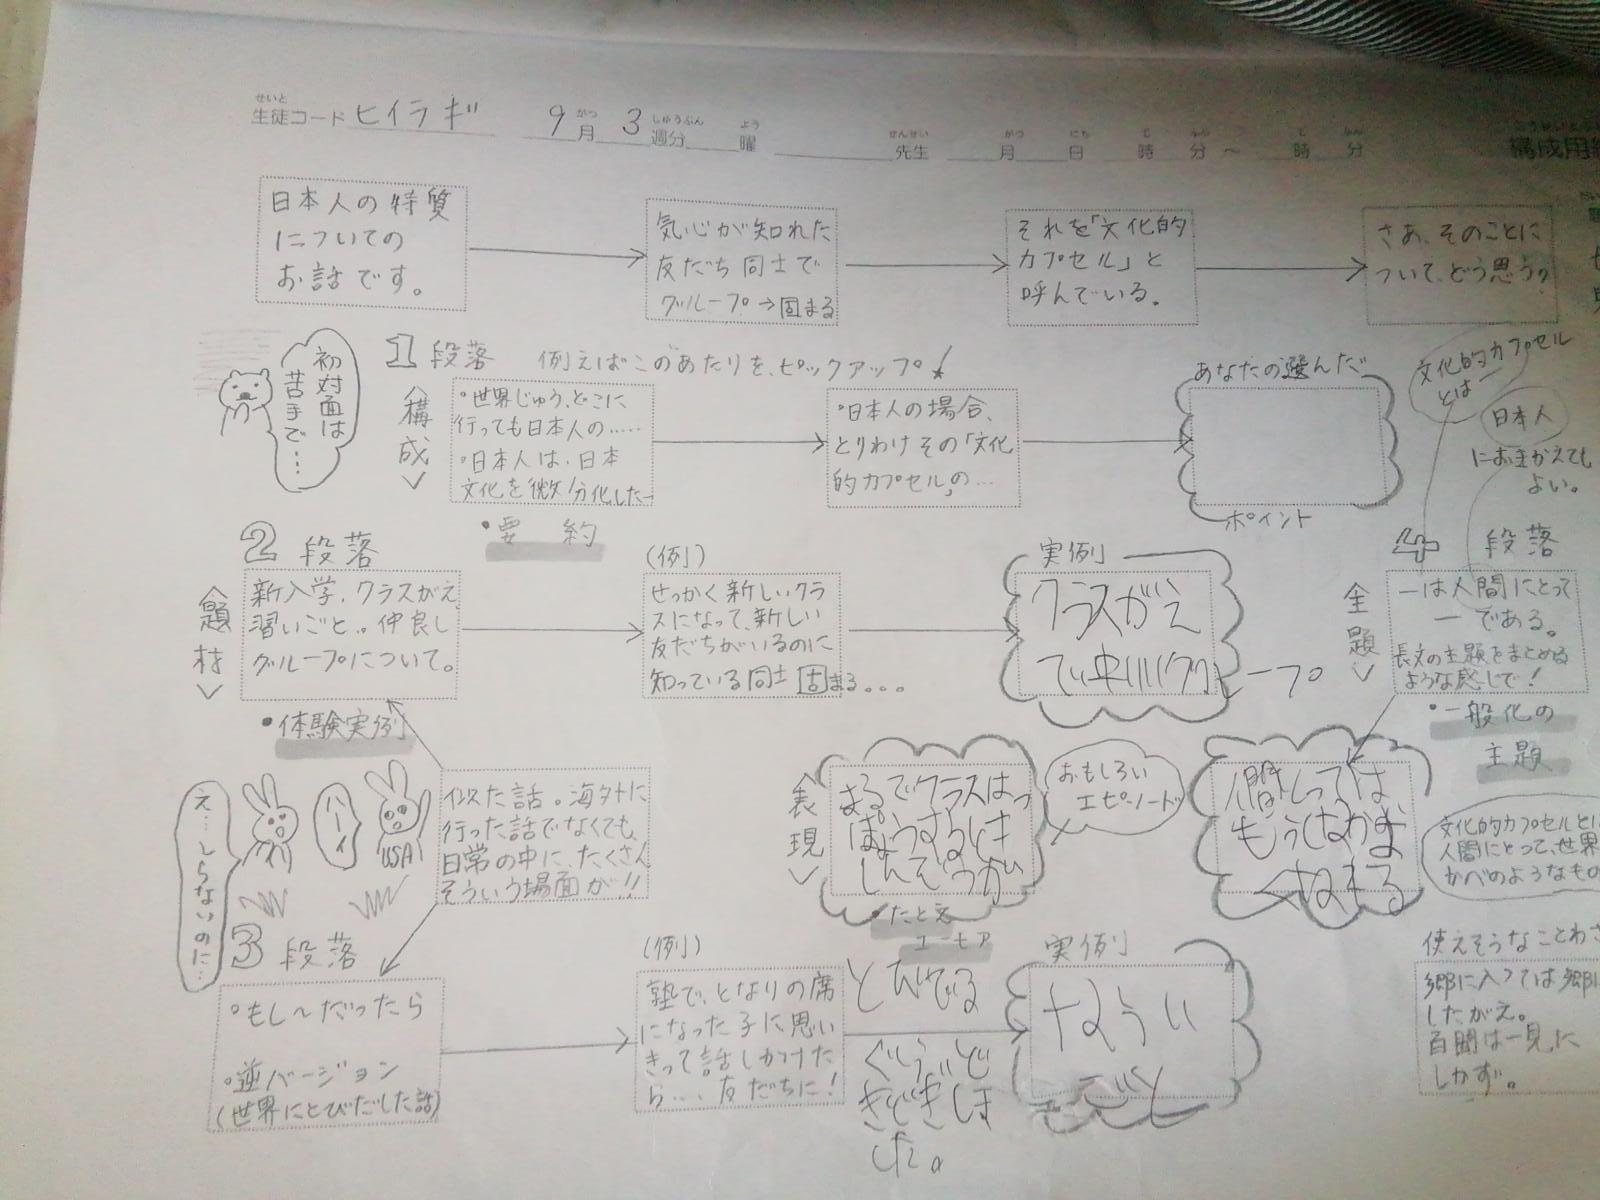 生徒コード ヒイラギ 9月 3週分 曜 先生 月 日 時 分～ 時 分
日本人の特質
についての
お話です。
気心が知れた
友だち同士で
グループ→固まる
それを「文化的
カプセル」と
呼んでいる。
さあ、そのことに
ついて、どう思う?
初対面は
苦手で…
1 段落 例えばこのあたりを、ピックアップ!
〈構成〉
・世界じゅう、どこに
行っても日本人の……
・日本人は、日本
文化を微分化した―
・要約
・日本人の場合、
とりわけその「文化
的カプセル」の…
あなたの選んだ
ポイント
文化的カプセル
とは―
日本人
におきかえても
よい。
2 段落
〈題材〉
新入学、クラスがえ、
習いごと。仲良し
グループについて。
・体験実例
(例)
せっかく新しいクラ
スになって、新しい
友だちがいるのに
知っている同士固まる...
実例
クラスがえ
ープ
4 段落
〈主題〉
―は人間にとって
―である。
長文の主題をまとめる
ような感じで!
・一般化の
主題
え…しらないのに…
ハーイ
USA
似た話。海外に
行った話でなくても、
日常の中に、たくさん
そういう場面が!!
〈表現〉
まるでクラスは
おもしろい
エピソード
・たとえ
ユーモア
文化的カプセルとは
人間にとって、世界
かべのようなもの
3 段落
・もし～だったら
・逆バージョン
(世界にとびだした話)
(例)
塾で、となりの席
になった子に思い
きって話しかけた
ら…、友だちに!
実例
使えそうなことわざ
郷に入っては郷に
したがえ。
百聞は一見に
しかず。